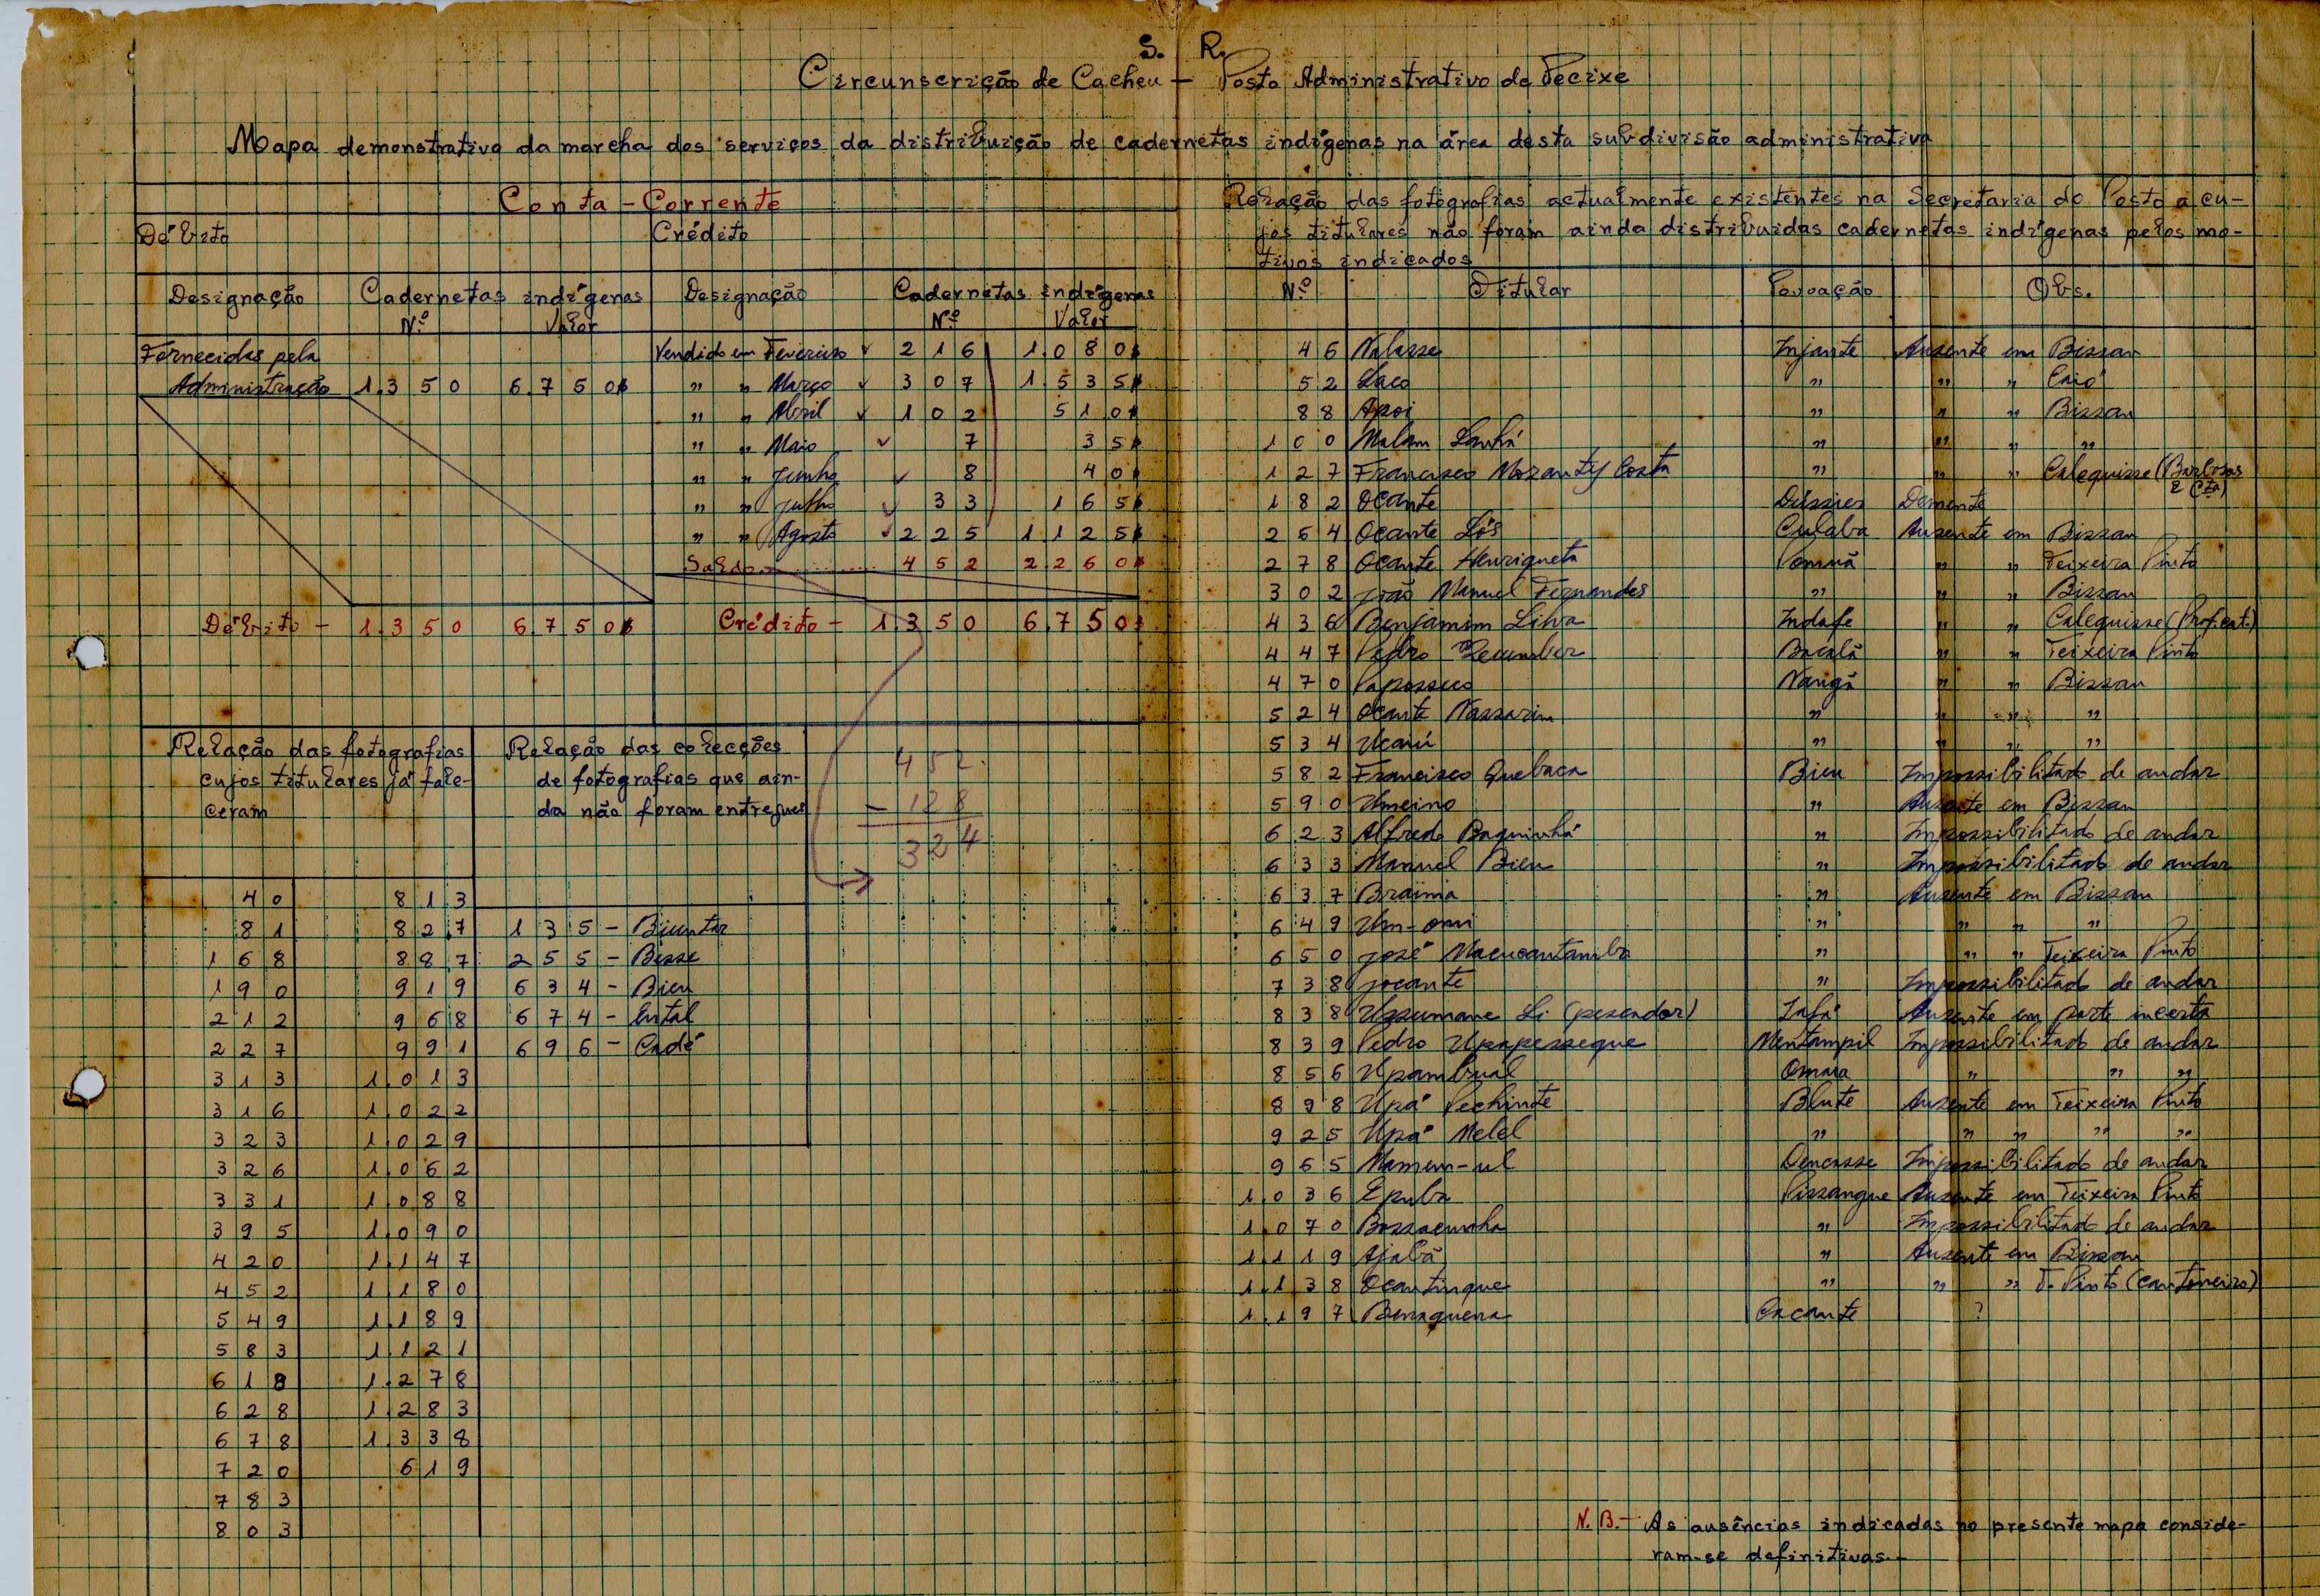 S. R.
Circunscrição de Cacheu — Posto Administrativo de Pecixe
Mapa demonstrativo da marcha dos serviços da distribuição de cadernetas indígenas na área desta subdivisão administrativa
Conta-Corrente
Débito Crédito
Designação Cadernetas indígenas Designação Cadernetas indígenas
Nº Valor Nº Valor
Fornecidas pela
Administração 1.350 6.750$
Vendido em Fevereiro 216 1.080$
" " Março 307 1.535$
" " Abril 102 510$
" " Maio 7 35$
" " Junho 8 40$
" " Julho 33 165$
" " Agosto 225 1.125$
Saldo 452 2.260$
Débito - 1.350 6.750$ Crédito - 1.350 6.750$
Relação das fotografias
cujos titulares já fale-
ceram
40 813
81 827
168 887
190 919
212 968
227 991
313 1.013
316 1.022
323 1.029
326 1.062
331 1.088
395 1.090
420 1.147
452 1.180
549 1.189
583 1.121
618 1.278
628 1.283
678 1.338
720 619
783
803
Relação das colecções
de fotografias que ain-
da não foram entregues
135 - Biuntar
255 - Besse
634 - Bieu
674 -
696 - Cadé
452
- 128
324
Relação das fotografias actualmente existentes na Secretaria do Posto a cu-
jos titulares não foram ainda distribuidas cadernetas indígenas pelos mo-
tivos indicados
Nº Titular Povoação Obs.
46 Nalasse Injante Ausente em Bissau
52 Laco " " " Caió
88 Apoi " " " Bissau
100 Malam Sanhá " " " "
127 Francisco Costa " " " Calequisse (Barbosas
& Cta)
182 Ocante Demente
264 Ocante Lós Culaba Ausente em Bissau
278 Ocante Henriqueta " " Teixeira Pinto
302 João Manuel Fernandes " " " Bissau
436 Benjamim Silva Indafe " " Calequisse (Prof. cat.)
447 Pedro " " Teixeira Pinto
470 Paposseco Nangã " " Bissau
524 Ocante Nassarim " " " "
534 Ucaiú " " " "
582 Francisco Quebaca Bieu Impossibilitado de andar
590 Umeino " Ausente em Bissau
623 Alfredo Baquinhá " Impossibilitado de andar
633 Manuel Bieu " Impossibilitado de andar
637 Braima " Ausente em Bissau
649 Um-omi " " " "
650 José Macucantamba " " " Teixeira Pinto
738 Jocante " Impossibilitado de andar
838 Ussumane Li (pescador) Ausente em parte incerta
839 Pedro Upapesseque Mentampil Impossibilitado de andar
856 Upambual Omaia " " "
898 Upá Pechinte Blute Ausente em Teixeira Pinto
925 Upá Melel " " " " "
965 Mamem-ul Dencasse Impossibilitado de andar
1.036 Epuba Pissangue Ausente em Teixeira Pinto
1.070 Bossacunha " Impossibilitado de andar
1.119 Ajabã " Ausente em Bissau
1.138 Ocantinque " " " T. Pinto (cantoneiro)
1.197 Cacante ?
N. B. - As ausências indicadas no presente mapa conside-
ram-se definitivas.-